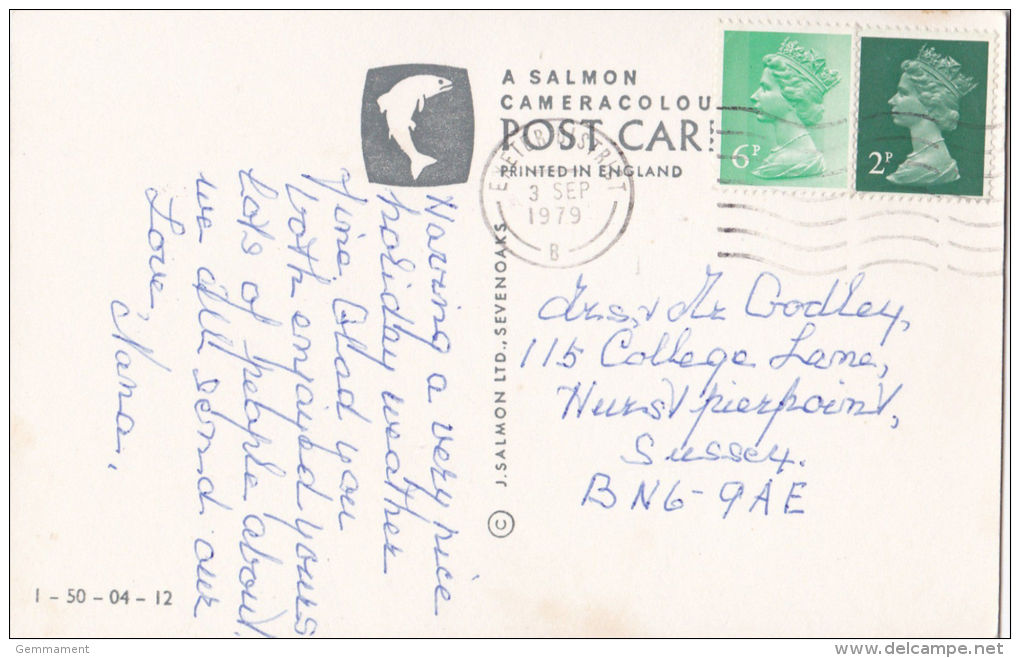 A SALMON
CAMERACOLOU
POST CAR
PRINTED IN ENGLAND
EXETER DISTRICT
3 SEP
1979
B
6P
2P
© J. SALMON LTD., SEVENOAKS
Having a very nice
holiday weather
fine Glad you
both enjoyed yours
Lots of people about.
we all send our
Love,
Nana.
Mrs. & Mr Godley,
115 College Lane,
Hurstpierpoint,
Sussex.
BN6-9AE
1 - 50 - 04 - 12
Gemmament
delcampe.net